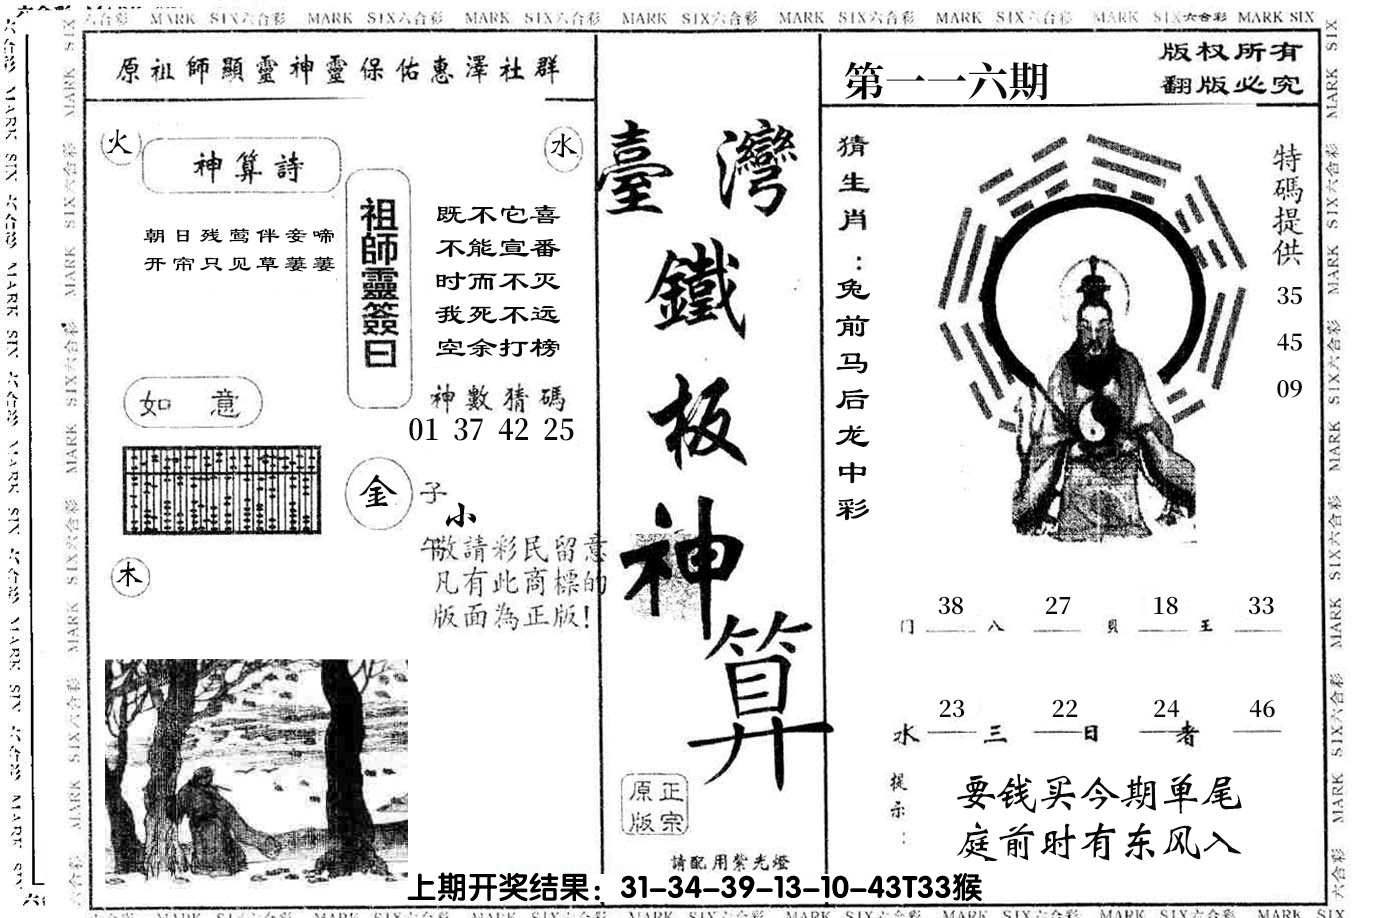 原祖師顯靈神靈保佑惠澤社群
火
神算詩
水
朝日残莺伴妾啼
开帘只见草萋萋
祖師靈簽曰
既不它喜
不能宣番
时而不灭
我死不远
空余打榜
如意
神數猜碼
01 37 42 25
金
子
小
午敬請彩民留意
凡有此商標的
版面為正版!
木
臺灣
鐵
板
神
算
正宗
原版
請配用紫光燈
第一一六期
版权所有
翻版必究
猜生肖:兔前马后龙中彩
特碼提供
35
45
09
38 27 18 33
门 八 貝 王
23 22 24 46
水 三 日 者
提示:
要钱买今期单尾
庭前时有东风入
上期开奖结果：31-34-39-13-10-43T33猴
MARK SIX六合彩 MARK SIX六合彩 MARK SIX六合彩 MARK SIX六合彩 MARK SIX六合彩 MARK SIX六合彩 MARK SIX六合彩 MARK SIX